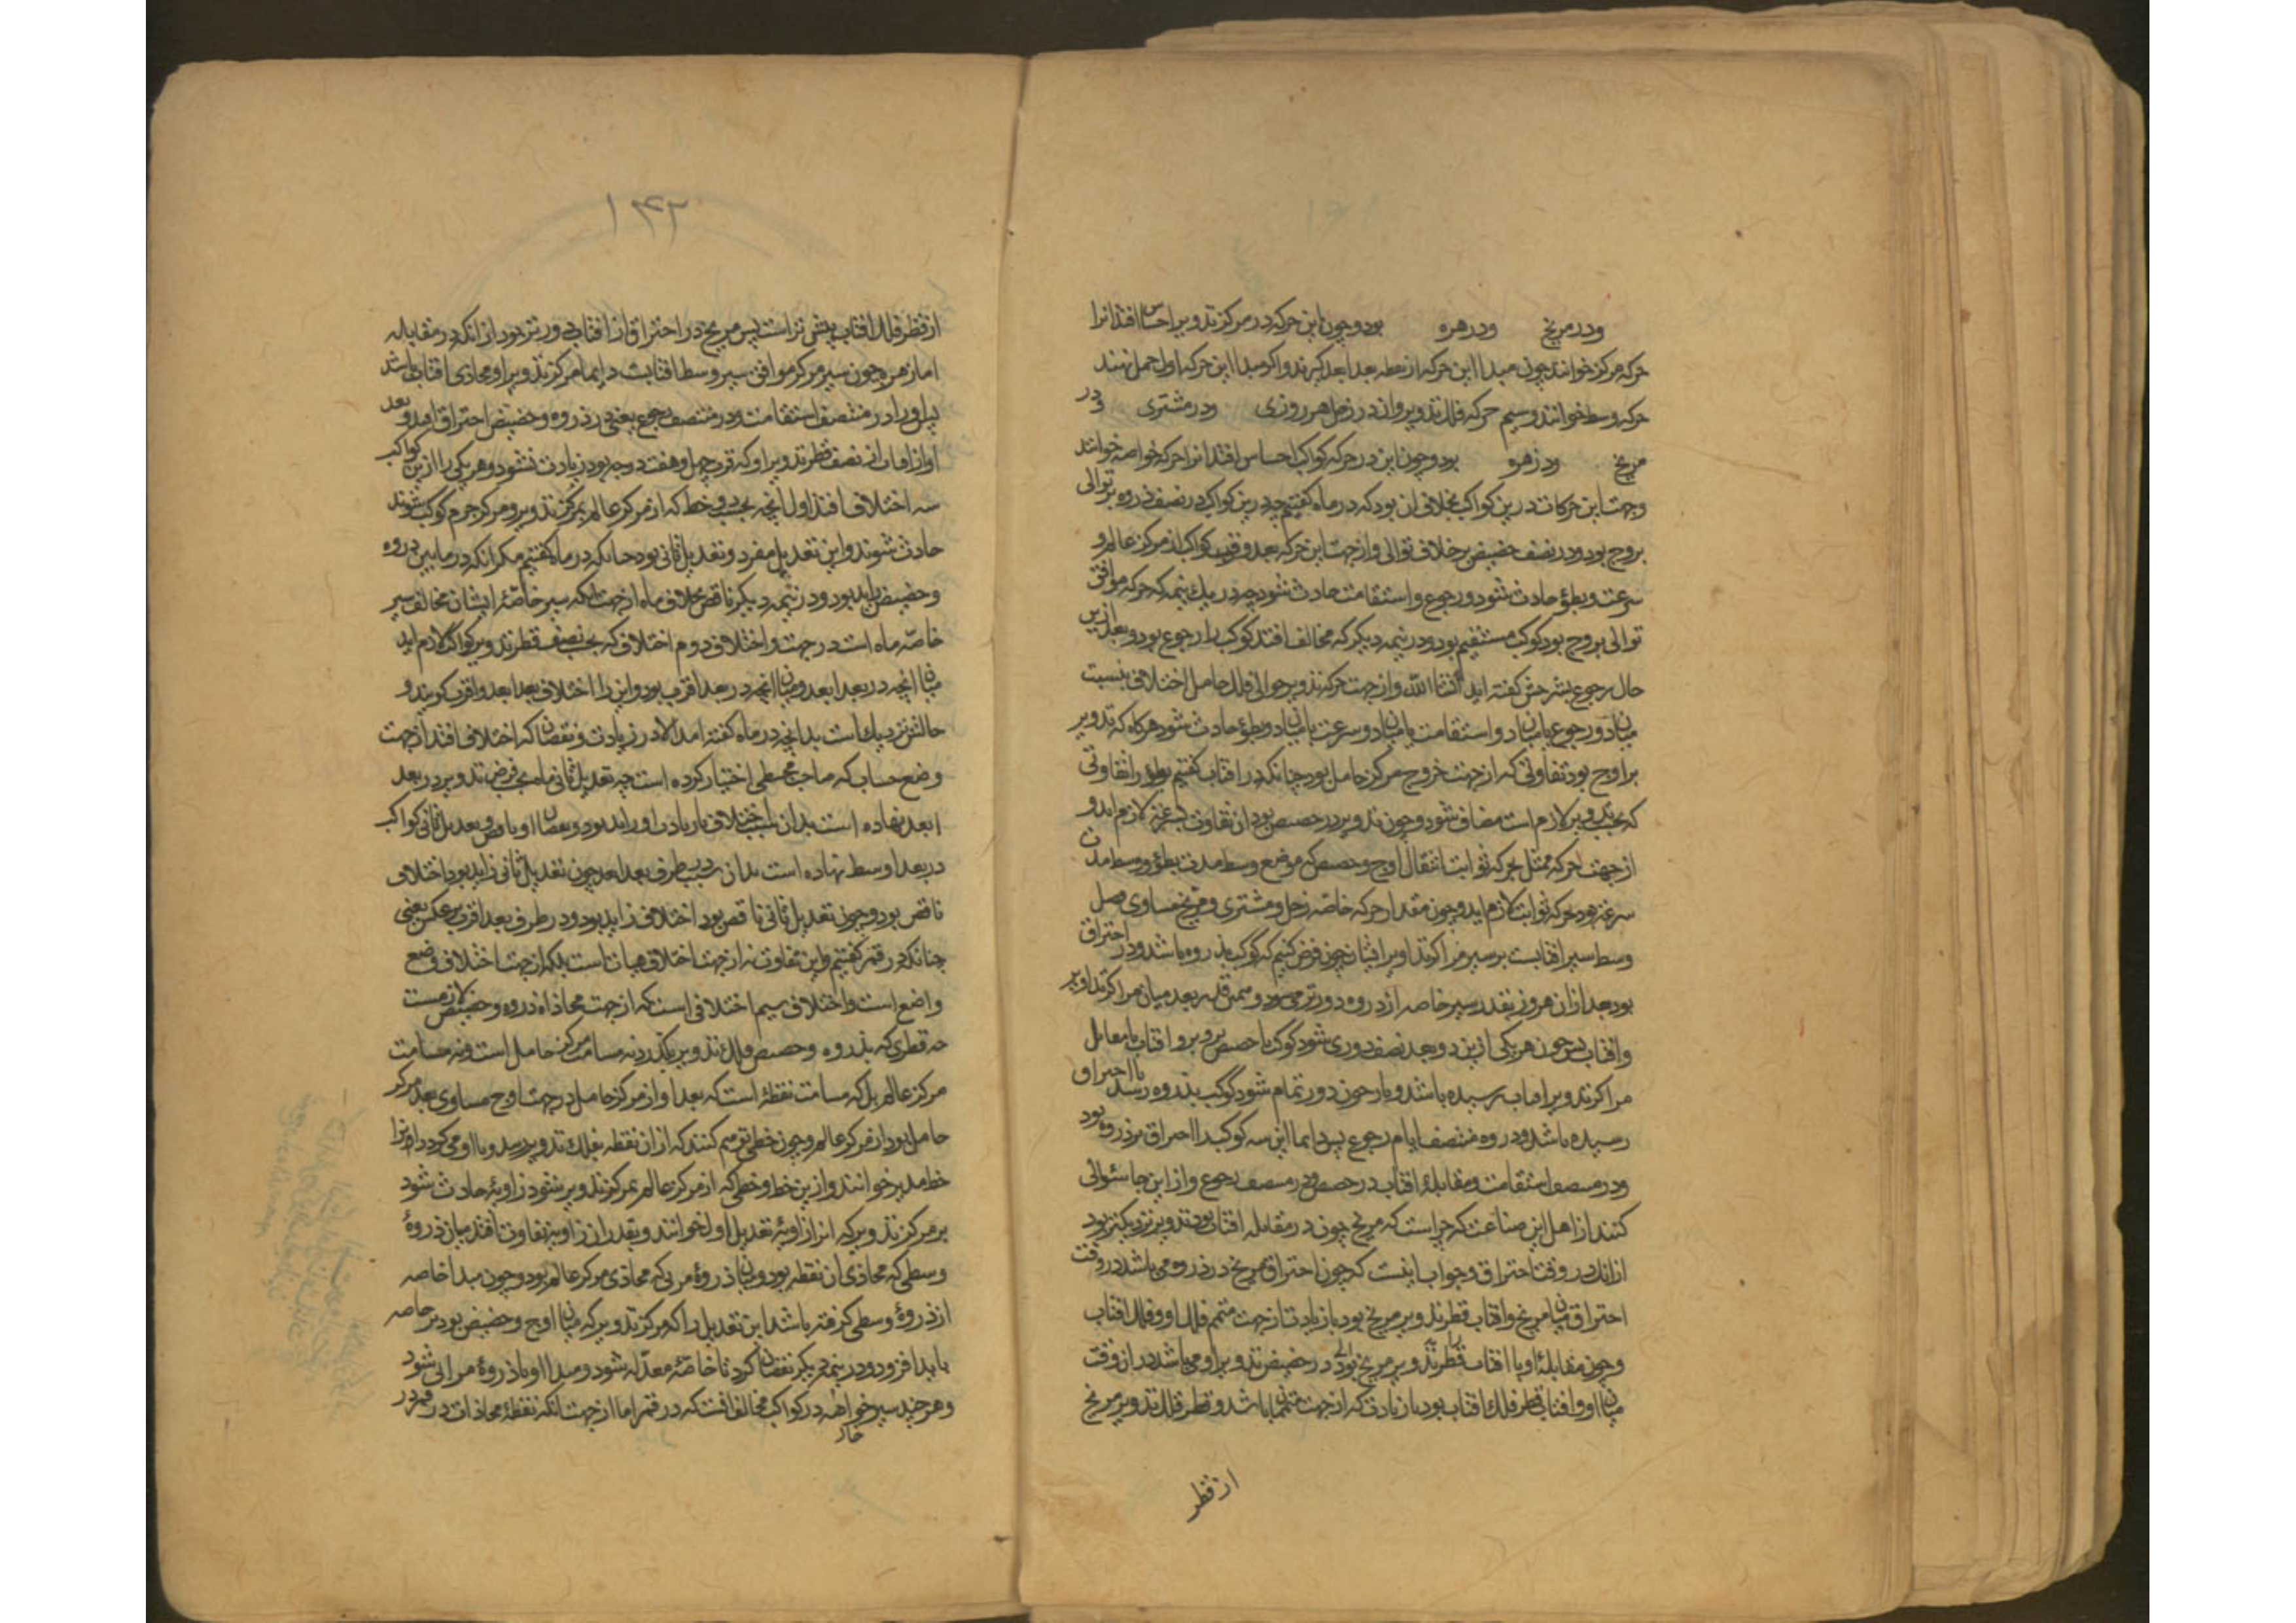 ودر مریخ ودر زهره بود وچون این حرکه در مرکز تدویر احساس افتد انرا
حرکه مرکز خوانند چون مبدا این حرکه از نقطه بعد ابعد کیرند واکر مبدا این حرکه اول حمل نهند
حرکه وسط خوانند وسیم حرکه فلک تدویر واز در زحل هر روزی ودر مشتری ودر
مریخ ودر زهره بود وچون این در حرکه کواکب احساس افتد انرا حرکه خاصه خوانند
وجهت این حرکات درین کواکب بخلاف ان بود که در ماه کفتیم چه درین کواکب در نصف ذروه بر توالی
بروج بود ودر نصف حضیض بر خلاف توالی واز جهت این حرکه بعد وقرب کواکب از مرکز عالم و
سرعت وبطؤ حادث شود ورجوع واستقامت حادث شود چه در یک نیمه که حرکه موافق
توالی بروج بود کوکب مستقیم بود ودر نیمه دیکر که مخالف افتد کوکب را رجوع بود وبعد ازین
حال رجوع بشرحتر کفته اید انشا الله واز جهت حرکه تدویر حوالی فلک حامل اختلافی بنسبت
میان دو رجوع یا میان دو استقامت یا میان دو سرعت یا میان دو بطؤ حادث شود هرکاه که تدویر
بر اوج بود تفاوتی که از جهت خروج مرکز حامل بود چنانکه در افتاب کفتیم بطؤ را تفاوتی
که بحسب تدویر لازم است مضاف شود وچون تدویر در حضیض بود ان تفاوت سرعت لازم اید و
از جهت حرکه ممثل بحرکه ثوابت انتقال اوج وحضیض که موضع وسط مدت بطؤ ووسط مدت
سرعت بود بحرکه ثوابت لازم اید وچون مقدار حرکه خاصه زحل ومشتری ومریخ مساوی فضل
وسط سیر افتابست بر سیر مراکز تداویر ایشان چون فرض کنیم که کوکب بذروه باشد ودر احتراق
بود بعد از ان هر روز بقدر سیر خاصه از ذروه دورتر می رود وهمین قدر بعد میان مراکز تداویر
وافتاب پس چون هر یکی ازین دو بعد نصف دوری شود کوکب با حضیض تدویر وافتاب با مقابل
مراکز تدویر ایشان رسیده باشد وباز چون دور تمام شود کوکب بذروه رسد با احتراق
رسیده باشد ودر وه منتصف ایام رجوع پس دایما این سه کوکب را احتراق بر ذروه بود
ودر منتصف استقامت ومقابله افتاب در حضیض ودر منتصف رجوع واز این جا سئوالی
کنند از اهل این صناعت که چراست که مریخ چون در مقابله افتاب بود تدویر نزدیکتر بود
از انک در وقت احتراق وجواب اینست که چون احتراق مریخ در ذروه می باشد در وقت
احتراق میان مریخ وافتاب قطر تدویر مریخ بود با زیادت از جهت متمم فلک او وفلک افتاب
وچون مقابله او با افتاب در حضیض تدویر او می باشد در ان وقت
میان او وافتاب قطر فلک افتاب بود با زیادت که از جهت متمم باشد وقطر فلک تدویر مریخ
از قطر
۱۴۲
از قطر فلک افتاب بیش تر است پس مریخ در احتراق از افتاب دورتر بود از انکه در مقابله
اما زهره چون سیر مرکز موافق سیر وسط افتابست دایما مرکز تدویر او محاذی افتاب باشد
پس او را در منتصف استقامت ودر منتصف رجوع یعنی در ذروه وحضیض احتراق افتد وبعد
او از افتاب از نصف قطر تدویر او که قرب چهل وهفت درجه بود زیادت نشود وهر یکی را ازین کواکب
سه اختلاف افتد اول انچه بحسب دو خط که از مرکز عالم بمرکز تدویر ومرکز جرم کوکب شوند
حادث شوند واین تعدیل مفرد وتعدیل ثانی بود چنانکه در ماه کفتیم مکر انکه در ما بین ذروه
وحضیض زاید بود ودر نیمه دیکر ناقص بخلاف ماه از جهت انکه سیر خاصّه ایشان مخالف سیر
خاصّه ماه است در جهت واختلاف دوم اختلافی که بحسب نصف قطر تدویر کواکب لازم اید
میان انچه در بعد ابعد ومیان انچه در بعد اقرب بود واین را اختلاف بعد ابعد واقرب کویند و
حالش نزدیک است بدانچه در ماه کفته امد الا در زیادت ونقصان که اختلاف افتد از جهت
وضع حساب که صاحب مجسطی اختیار کرده است چه تعدیل ثانی ماه بحسب فرض تدویر در بعد
ابعد نهاده است بدان سبب اختلاف با زیادت او زاید بود وبا نقصان او ناقص وتعدیل ثانی کواکب
در بعد اوسط نهاده است بدان سبب در طرف بعد ابعد چون تعدیل ثانی زاید بود اختلاف
ناقص بود وچون تعدیل ثانی ناقص بود اختلاف زاید بود ودر طرف بعد اقرب بر عکس یعنی
چنانکه در قمر کفتیم واین تفاوت نه از جهت اختلاف هیات است بلکه از جهت اختلاف وضع
واضع است واختلاف سیم اختلافی است که از جهت محاذاة ذروه وحضیض لازمست
چه قطری که بذروه وحضیض فلک تدویر بکذرد نه مسامت مرکز حامل است ونه مسامت
مرکز عالم بل که مسامت نقطهٔ است که بعد او از مرکز حامل در جهت اوج مساوی بعد مرکز
حامل بود از مرکز عالم وچون خطی توهم کنند که از ان نقطه بفلک تدویر رسد وبا او می کردد انرا
خط مدیر خوانند وازین خط وخطی که از مرکز عالم بمرکز تدویر شود زاویهٔ حادث شود
بر مرکز تدویر که انرا زاویهٔ تعدیل اول خوانند وبقدر ان زاویه تفاوت افتد میان ذروهٔ
وسطی که محاذی ان نقطه بود ومیان ذروهٔ مرئی که محاذی مرکز عالم بود وچون مبدا خاصه
از ذروهٔ وسطی کرفته باشد این تعدیل را که مرکز تدویر که میان اوج وحضیض بود بر خاصه
باید افزود ودر نیمه دیکر نقصان کرد تا خاصّهٔ معدّله شود ومبدا او با ذروهٔ مرائی شود
وهر چند سیر خواصه در کواکب مخالف افتد که در قمر اما از جهت انکه نقطهٔ محاذات در قمر در